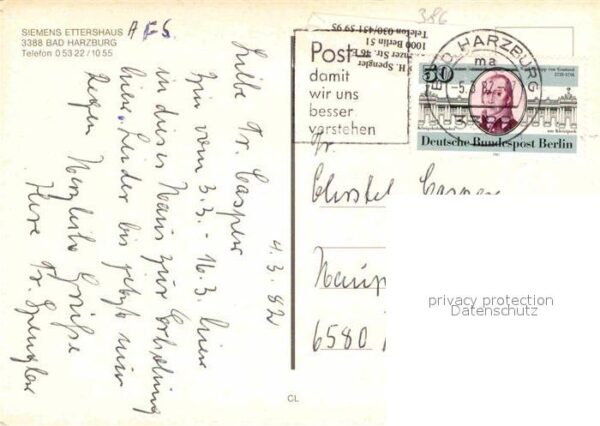 SIEMENS ETTERSHAUS
3388 BAD HARZBURG
Telefon 0 53 22 / 10 55
AFS
386
4.3.82
Liebe Fr. Casper
Bin vom 3.3. - 16.3. hier
in dieses Haus zur Erholung
hier. Leider bis jetzt nur
Regen Herzliche Grüße
Ihre Fr. Spengler
H. Spengler
1000 Berlin 51
Telefon 030/451 59 95
Post
damit
wir uns
besser
verstehen
BAD HARZBURG 1
ma
-5.3.82
50
Deutsche Bundespost Berlin
Fr.
Christel Casper
6580
privacy protection
Datenschutz
CL